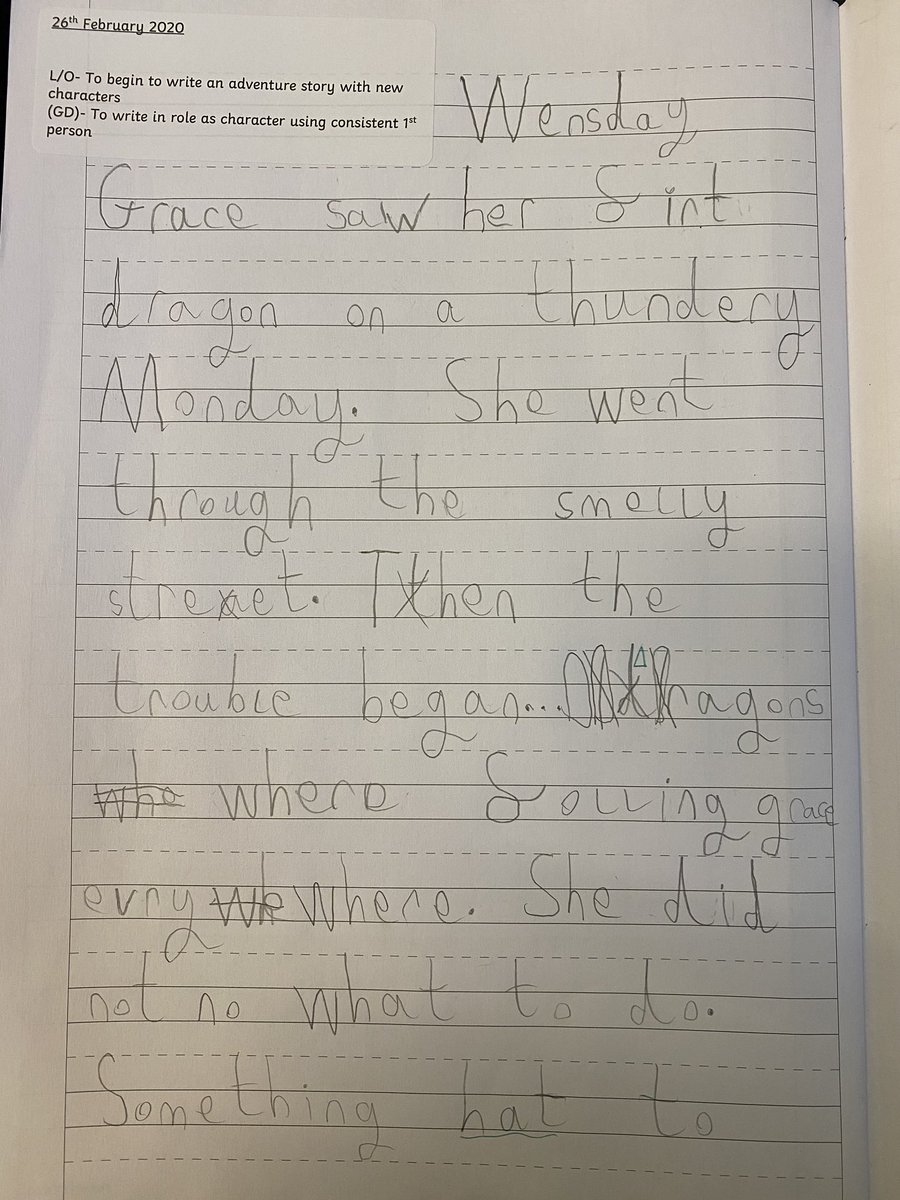 26th February 2020
L/O- To begin to write an adventure story with new
characters
(GD)- To write in role as character using consistent 1st
person
Wensday
Grace saw her fint
dragon on a thundery
Monday. She went
through the smelly
street. Then the
trouble began... Dragons
who where folling grace
evry where. She did
not no what to do.
Something hat to